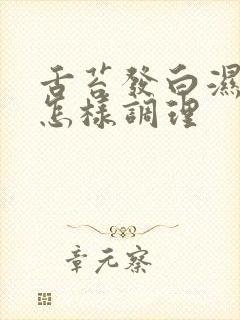 舌苔發白濕
怎樣調理
章元察